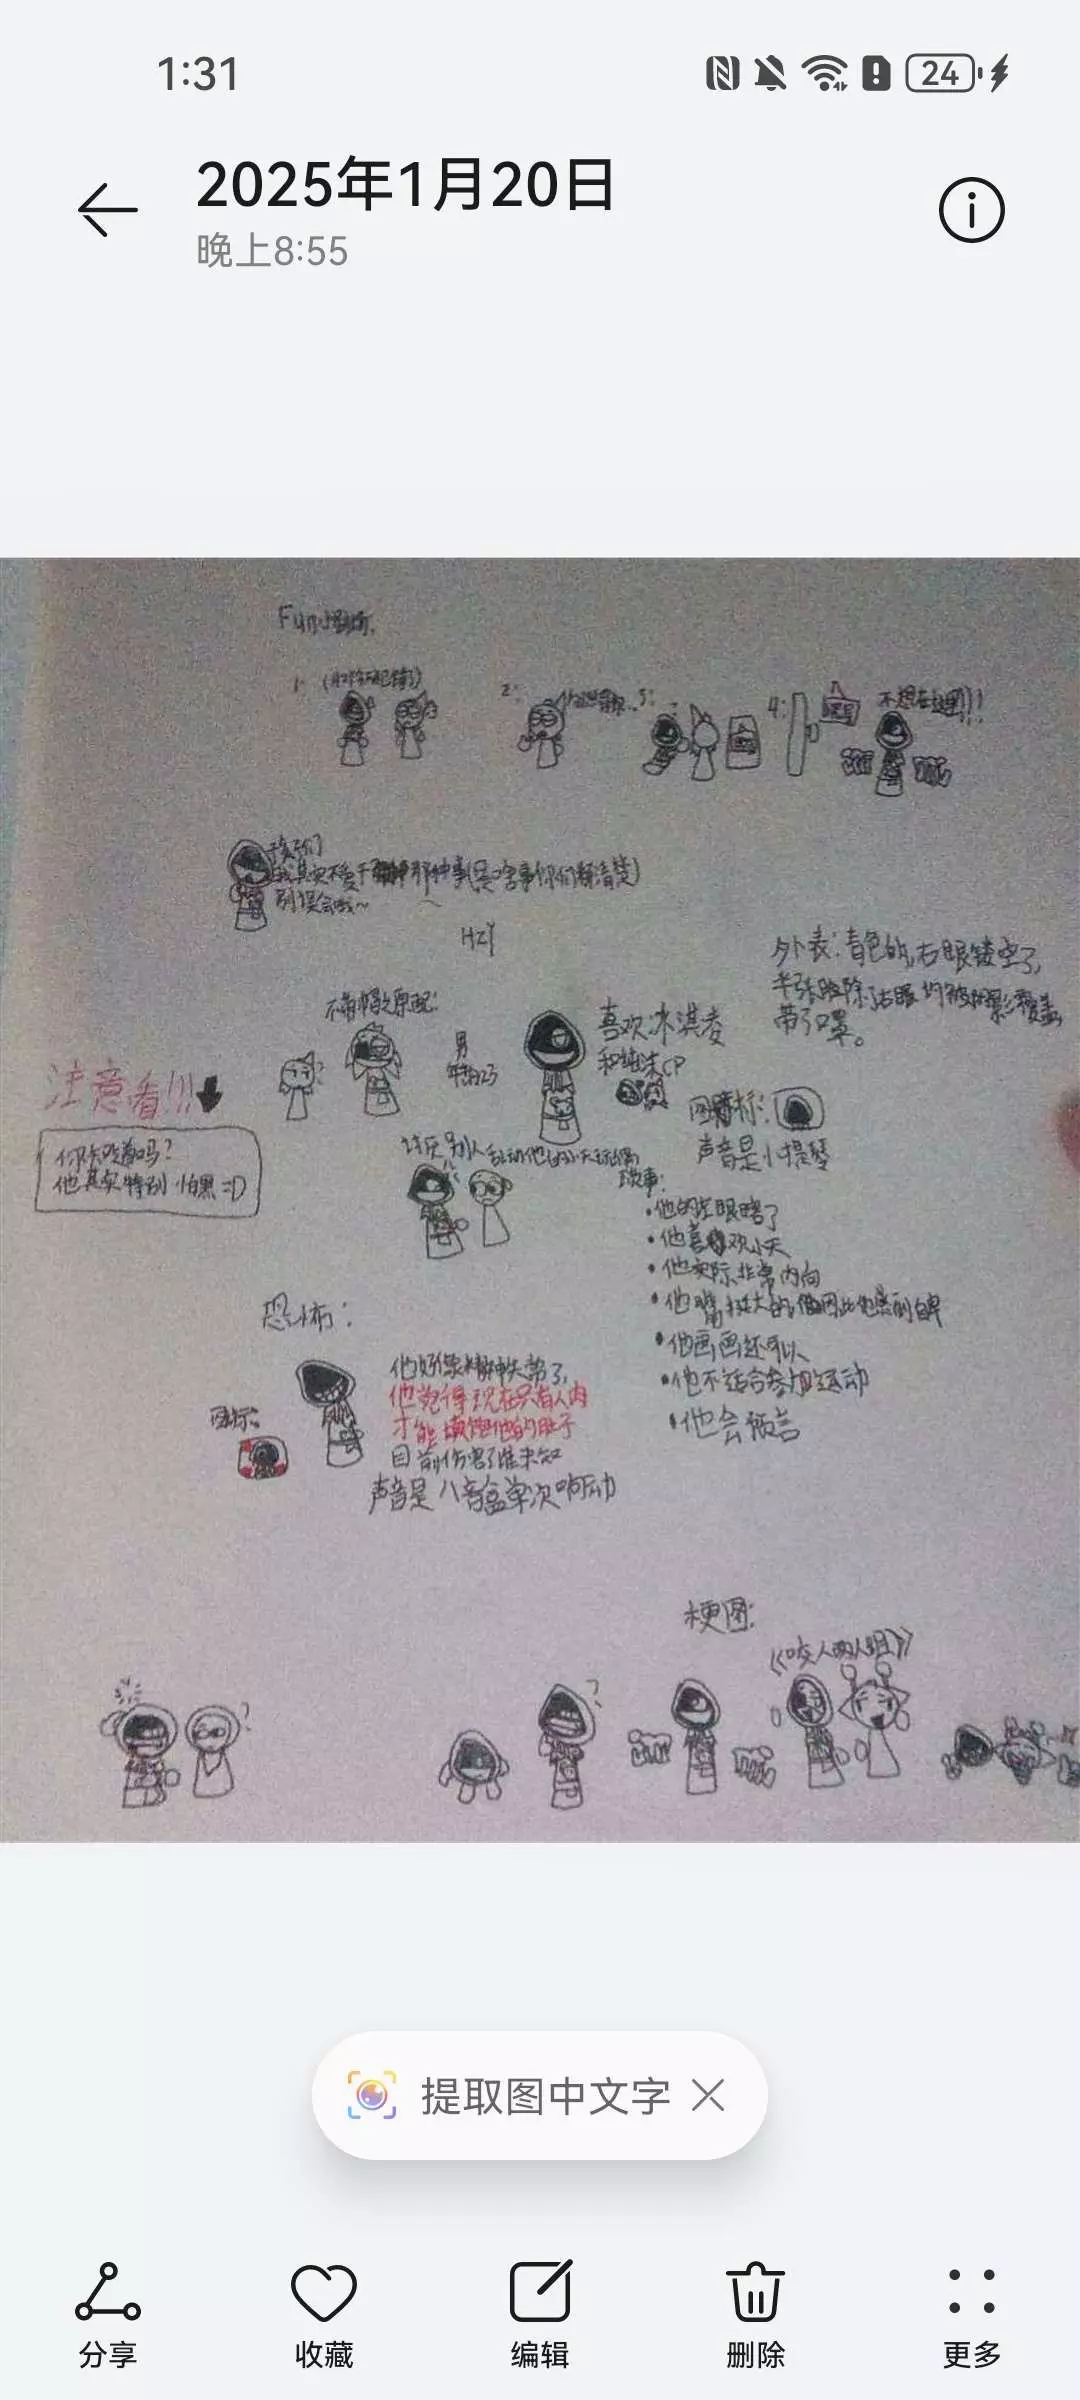 1:31
24
2025年1月20日
晚上8:55
Fun小剧场.
1:
2:
3:
4:
不想在这里!!!
孩子们
我其实不爱干那种事(是啥事你们都清楚)
别误会哦~
HZY
外表:青色的,右眼镂空了,
半张脸除了右眼均被阴影覆盖,
带了口罩。
男
年龄23
喜欢冰淇凌
和 CP
注意看!!!
你知道吗?
他其实特别怕黑:D
图标:
声音是小提琴
讨厌别人乱动他的小天玩偶
故事:
•他的左眼瞎了
•他喜欢小天
•他实际非常内向
•他嘴挺大的,
•他画画还可以
•他不适合参加运动
•他会预言
恐怖:
他好像精神失常了,
他觉得现在只有人肉
才能填饱他的肚子
目前伤害了谁未知
图标:
声音是八音盒单次响动
梗图:
《咬人两人组》
提取图中文字
分享
收藏
编辑
删除
更多